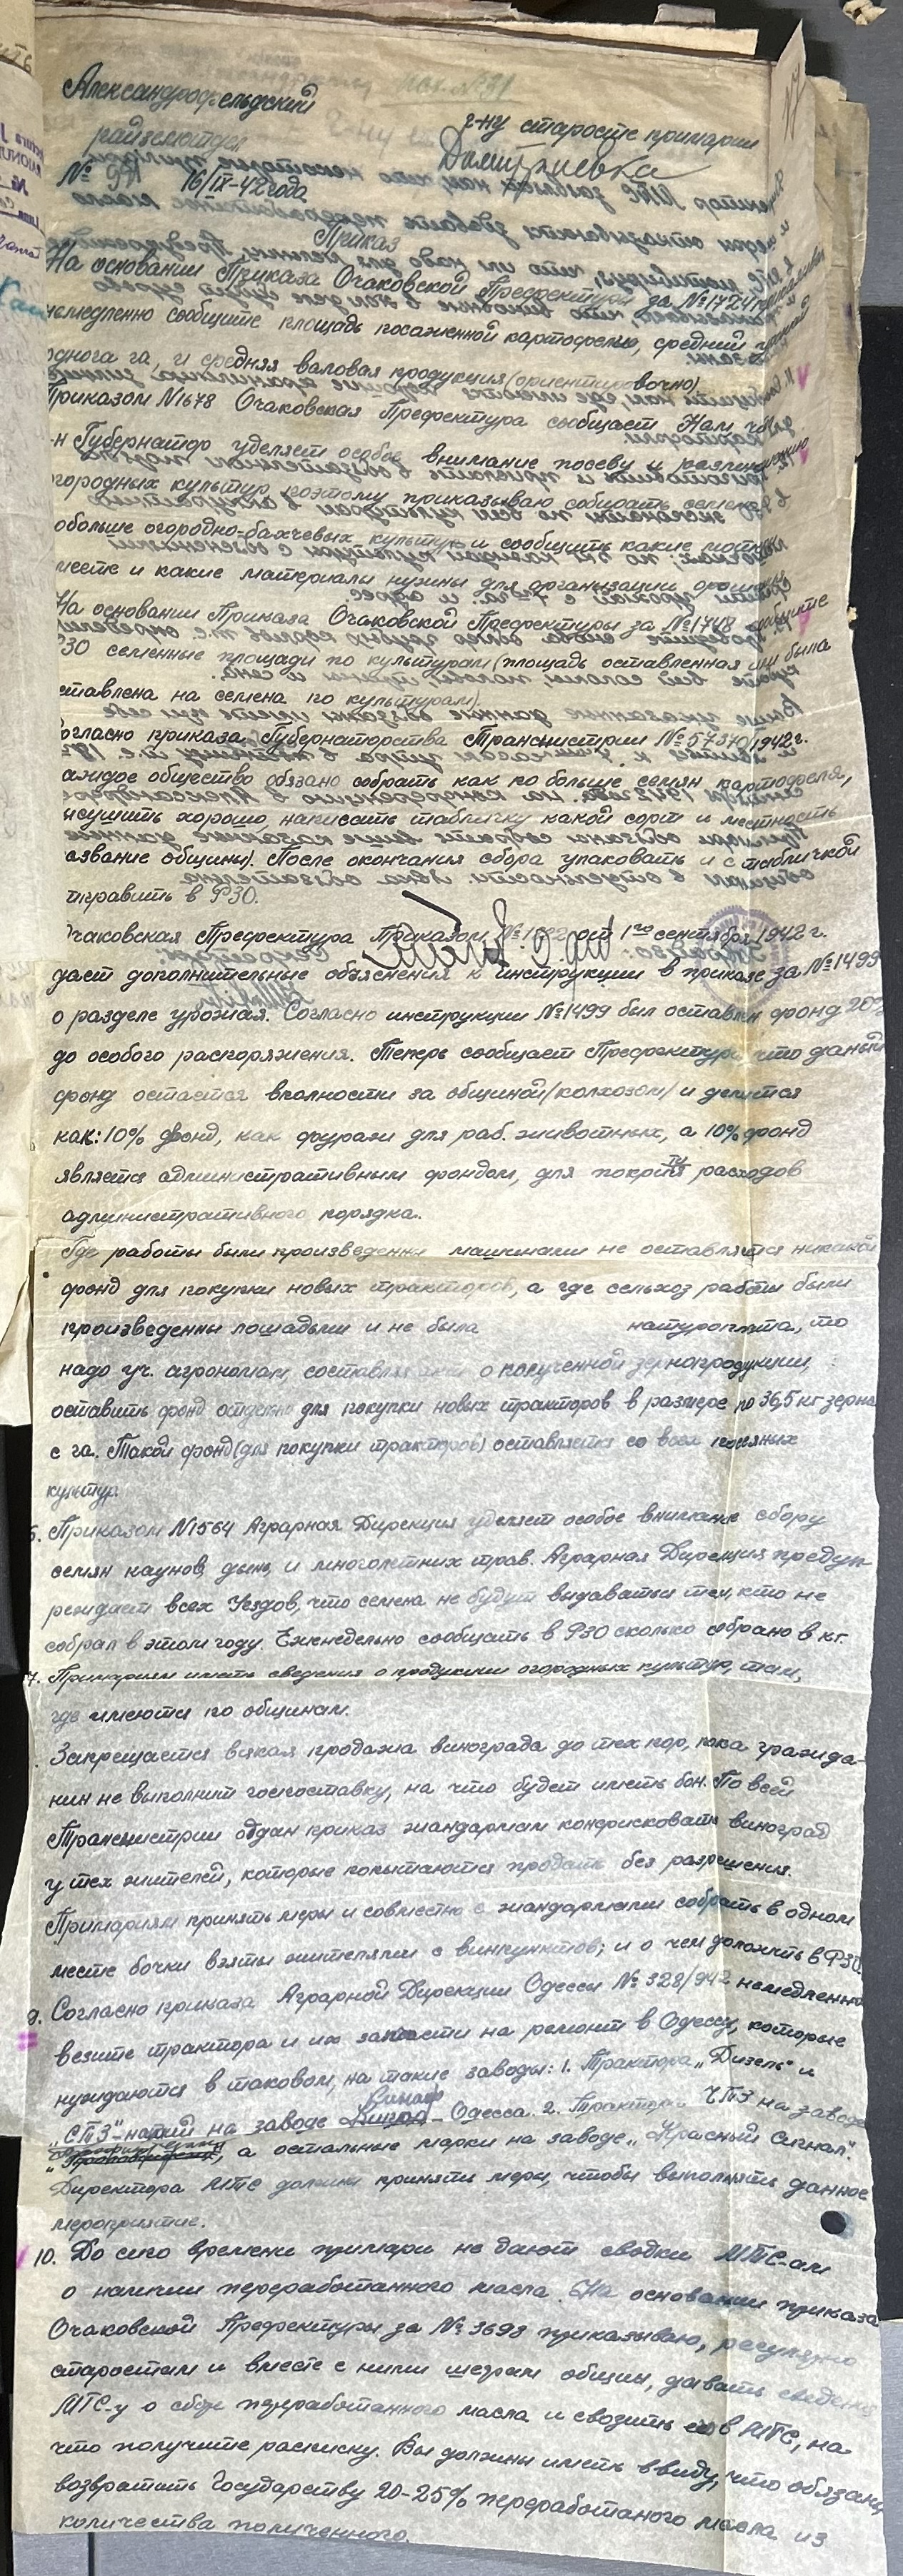 Александрофельдский
райземотдел
№ 991 16/IX-42 года
г-ну старосте примарии
Дмитриевка
Приказ
На основании Приказа Очаковской Префектуры за №1724 приказываю
немедленно сообщите площадь посаженной картофелью, средний урожай
одного га, и средняя валовая продукция (ориентировочно).
Приказом №1678 Очаковская Префектура сообщает Нам, что
-н Губернатор уделяет особое внимание посеву и размещению
огородных культур, поэтому приказываю собирать семена
обольше огородно-бахчевых культур и сообщить какие
месте и какие материалы нужны для организации
На основании Приказа Очаковской Префектуры за №1748 сообщите
РЗО семенные площади по культурам (площадь оставленная или была
ставлена на семена по культурам).
огласно приказа Губернаторства Транснистрии №57370/1942 г.
аждое общество обязано собрать как по больше семян картофеля,
исушить хорошо, написать табличку какой сорт и местность
азвание общины). После окончания сбора упаковать и с табличкой
тправить в РЗО.
Очаковская Префектура Приказом от 1го сентября 1942 г.
дает дополнительные объяснения к инструкции в приказе за №1499
о разделе урожая. Согласно инструкции №1499 был оставлен фонд 20%
до особого распоряжения. Теперь сообщает Префектура что даный
фонд остается вполности за общиной /колхозом/ и делится
как: 10% фонд, как фураж для раб. животных, а 10% фонд
является административным фондом, для покрития расходов
административного порядка.
Где работы были произведенны машинами не оставляется никакой
фонд для покупки новых тракторов, а где сельхоз работы были
произведенны лошадьми и не была натуроплата, то
надо уч. агрономам, составляя акт о полученной зернопродукции,
оставить фонд отдельно для покупки новых тракторов в размере по 36,5 кг зерна
с га. Такой фонд (для покупки тракторов) оставляется со всех посевных
культур.
6. Приказом №1564 Аграрная Дирекция уделяет особое внимание сбору
семян каунов, дынь, и многолетних трав. Аграрная Дирекция предуп-
реждает всех Уездов, что семена не будут выдаваться тем, кто не
собрал в этом году. Еженедельно сообщать в РЗО сколько собрано в кг.
7. Примариям иметь сведения о продукции огородных культур, там,
где имеются по общинам.
Запрещается всякая продажа винограда до тех пор, пока гражда-
нин не выполнит госпоставку, на что будет иметь бон. По всей
Транснистрии отдан приказ жандармам конфисковать виноград
у тех жителей, которые попытаются продать без разрешения.
Примариям принять меры и совместно с жандармами собрать в одном
месте бочки взяты жителями с винпунктов; и о чем доложить в РЗО.
9. Согласно приказа Аграрной Дирекции Одессы № 328/942 немедленно
везите трактора и их запчасти на ремонт в Одессу, которые
нуждаются в таковом, на такие заводы: 1. Трактора „Дизель" и
„СТЗ"-натий на заводе - Одесса. 2. Трактори ЧТЗ на заводе
, а остальные марки на заводе „Красный сигнал".
Директора МТС должны принять меры, чтобы выполнить данное
мероприятие.
10. До сего времени примари не дают сводки МТС-ам
о наличии переработанного масла. На основании приказа
Очаковской Префектуры за № 3698 приказываю, регулярно
старостам и вместе с ними шефам общин, давать сведения
МТС-у о сборе переработанного масла и свозить его в МТС, на
что получите расписку. Вы должны иметь ввиду, что обязаны
возвратить Государству 20-25% переработаного масла из
количества полученного.